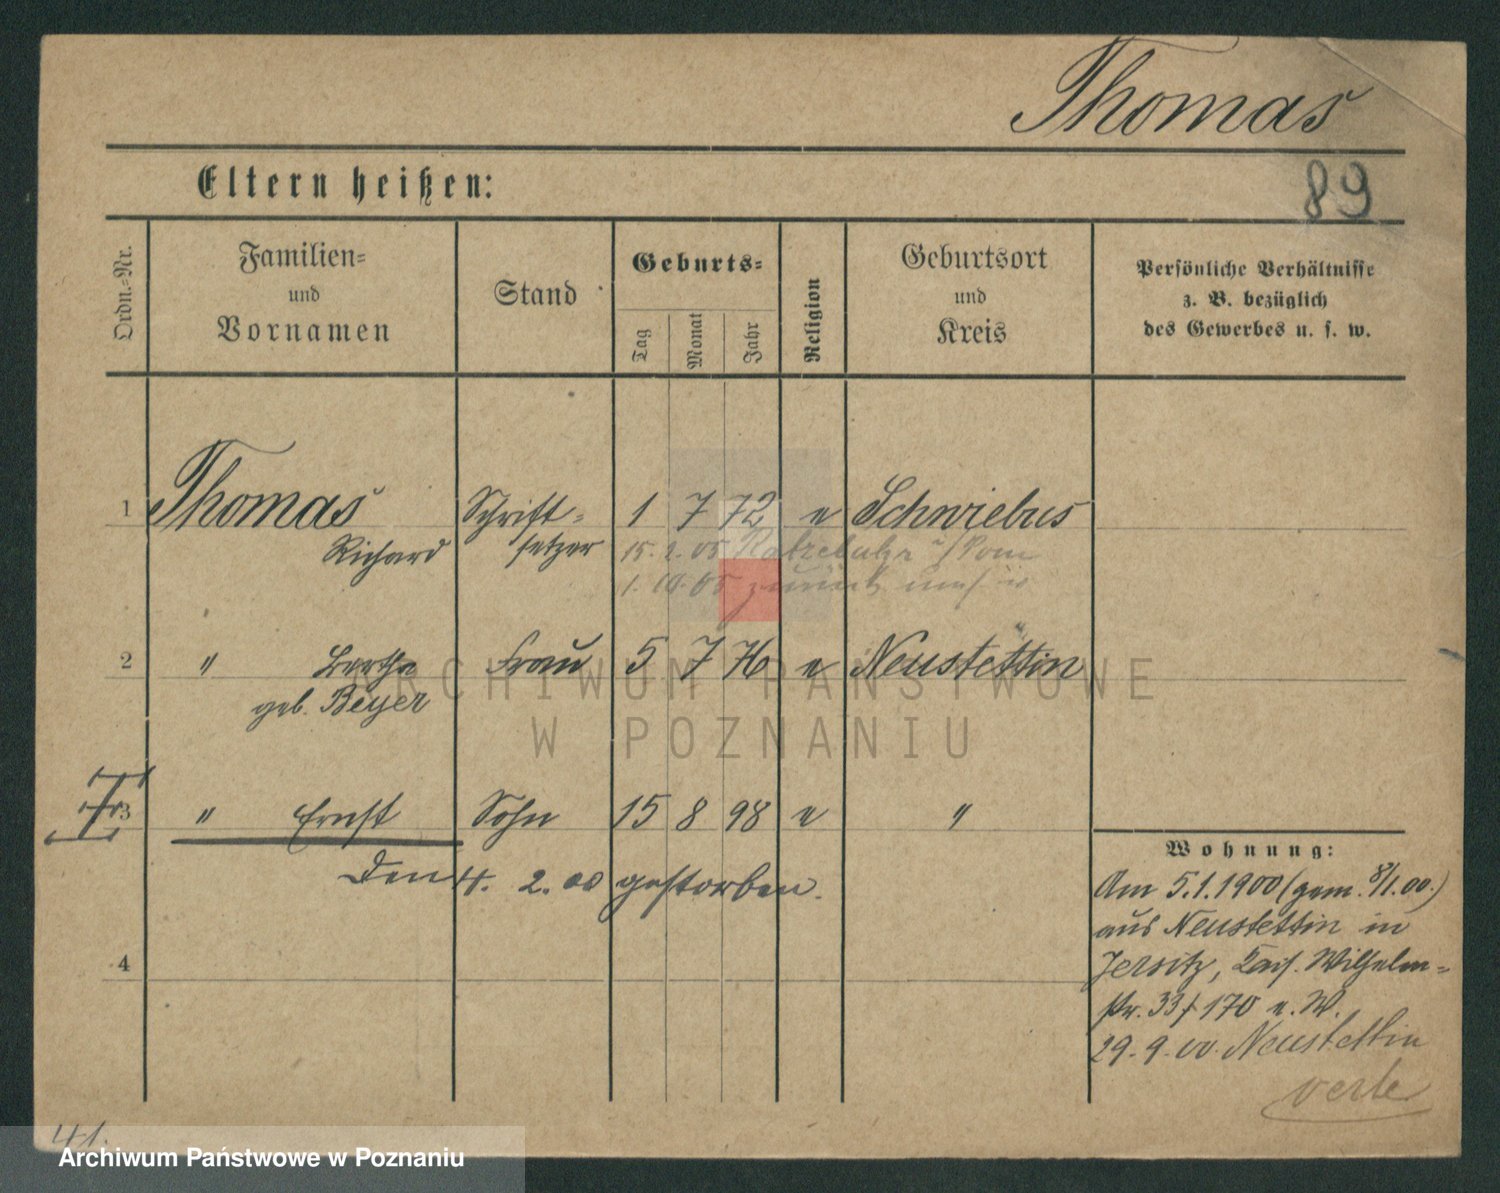 Thomas
Eltern heißen:
89
Ordn.-Nr.
Familien-
und
Vornamen
Stand
Geburts-
Tag
Monat
Jahr
Religion
Geburtsort
und
Kreis
Persönliche Verhältnisse
z. B. bezüglich
des Gewerbes u. s. w.
1 Thomas Schrift- 1 7 72 e Schwiebus
Richard setzer 15. 2. 05 Ratzebuhr i/Pom
1. 10. 05 zurück
2 " Bertha Frau 5 7 76 e Neustettin
geb. Beyer
ARCHIWUM PAŃSTWOWE
W POZNANIU
3 " Ernst Sohn 15 8 98 e "
Den 4. 2. 00 gestorben.
4
Wohnung:
Am 5.1.1900 (gem. 8/1.00.)
aus Neustettin in
Jersitz, Kais. Wilhelm-
str. 33/170 e. W.
29. 9. 00. Neustettin
41.
Archiwum Państwowe w Poznaniu